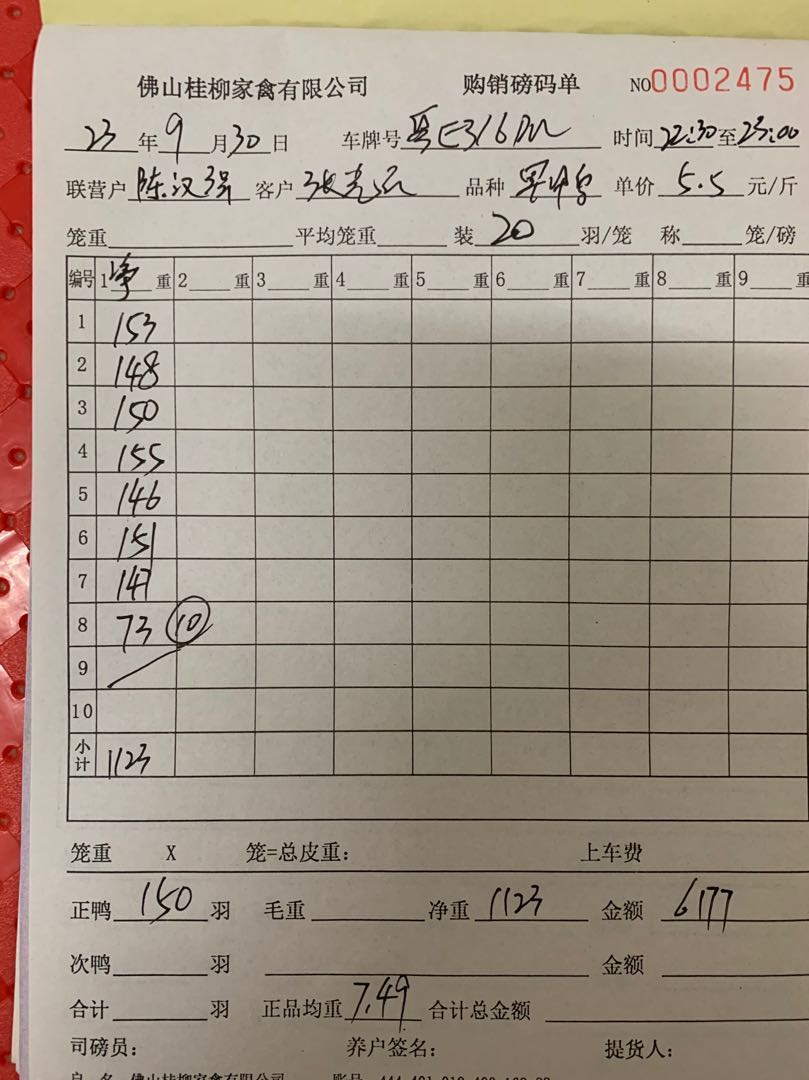 佛山桂柳家禽有限公司 购销磅码单 NO0002475
23年9月30日 车牌号 时间22:30至23:00
联营户陈汉强 客户 品种 单价5.5元/斤
笼重 平均笼重 装20羽/笼 称 笼/磅
编号 1净重 2 重 3 重 4 重 5 重 6 重 7 重 8 重 9 重
1 153
2 148
3 150
4 155
5 146
6 151
7 147
8 73 10
9
10
小计 1123
笼重 X 笼=总皮重: 上车费
正鸭150羽 毛重 净重1123 金额6177
次鸭 羽 金额
合计 羽 正品均重7.49 合计总金额
司磅员: 养户签名: 提货人: